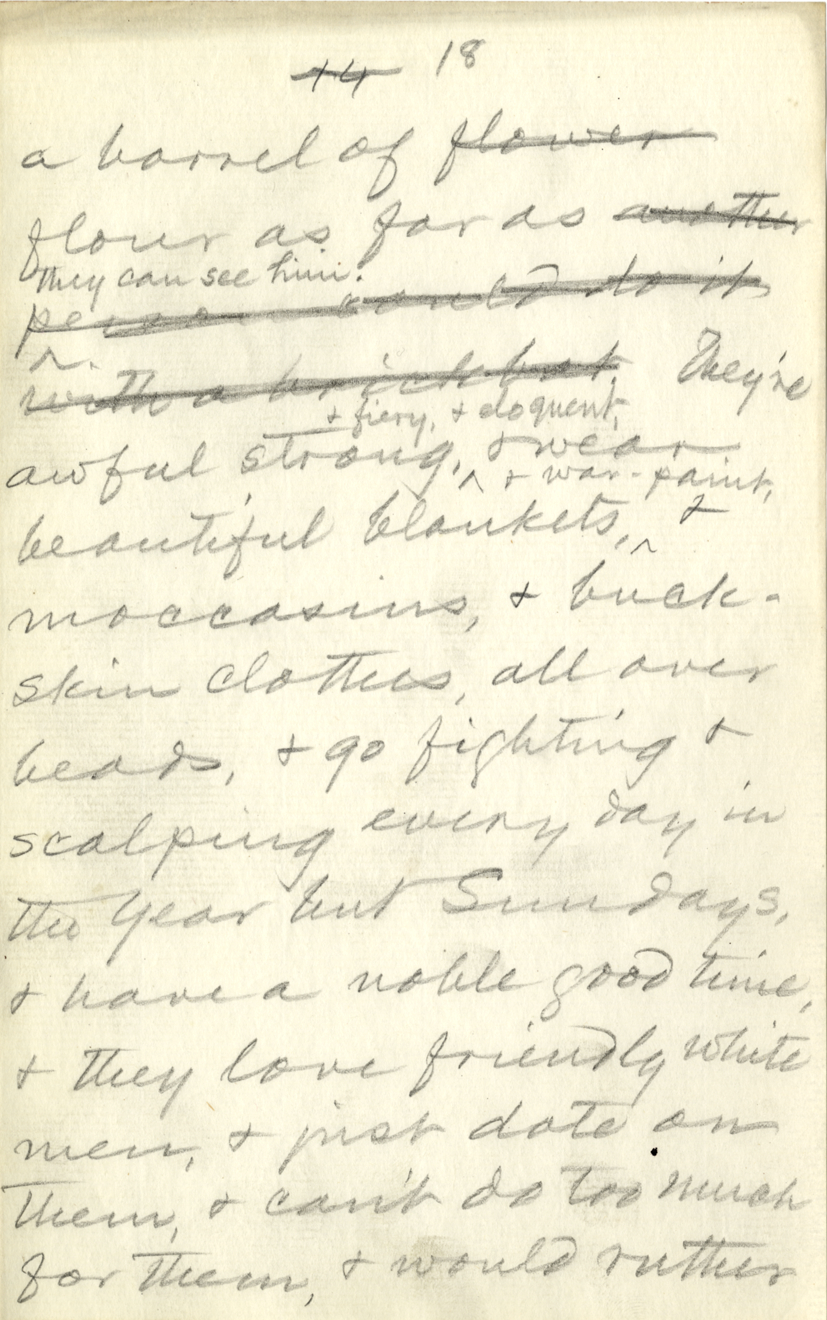 14 18
a barrel of flower
flour as far as another
they can see him.
person could do it
with a brickbat. They're
+ fiery, + eloquent,
awful strong, + wear
+ war-paint,
beautiful blankets, +
moccasins, + buck-
skin clothes, all over
beads, + go fighting +
scalping every day in
the year but Sundays,
+ have a noble good time,
+ they love friendly white
men, + just dote on
them, + can't do too much
for them, + would ruther